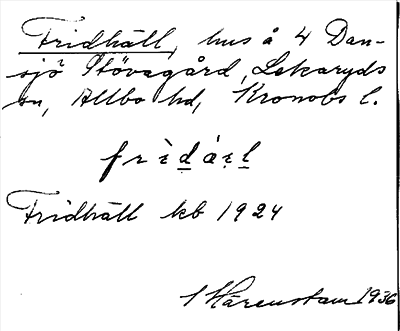 Fridhäll, hus å 4 Dan-
sjö Stövagård, Lekaryds
sn, Allbo hd, Kronobs l.
Fridhäll kb 1924
Härenstam 1936